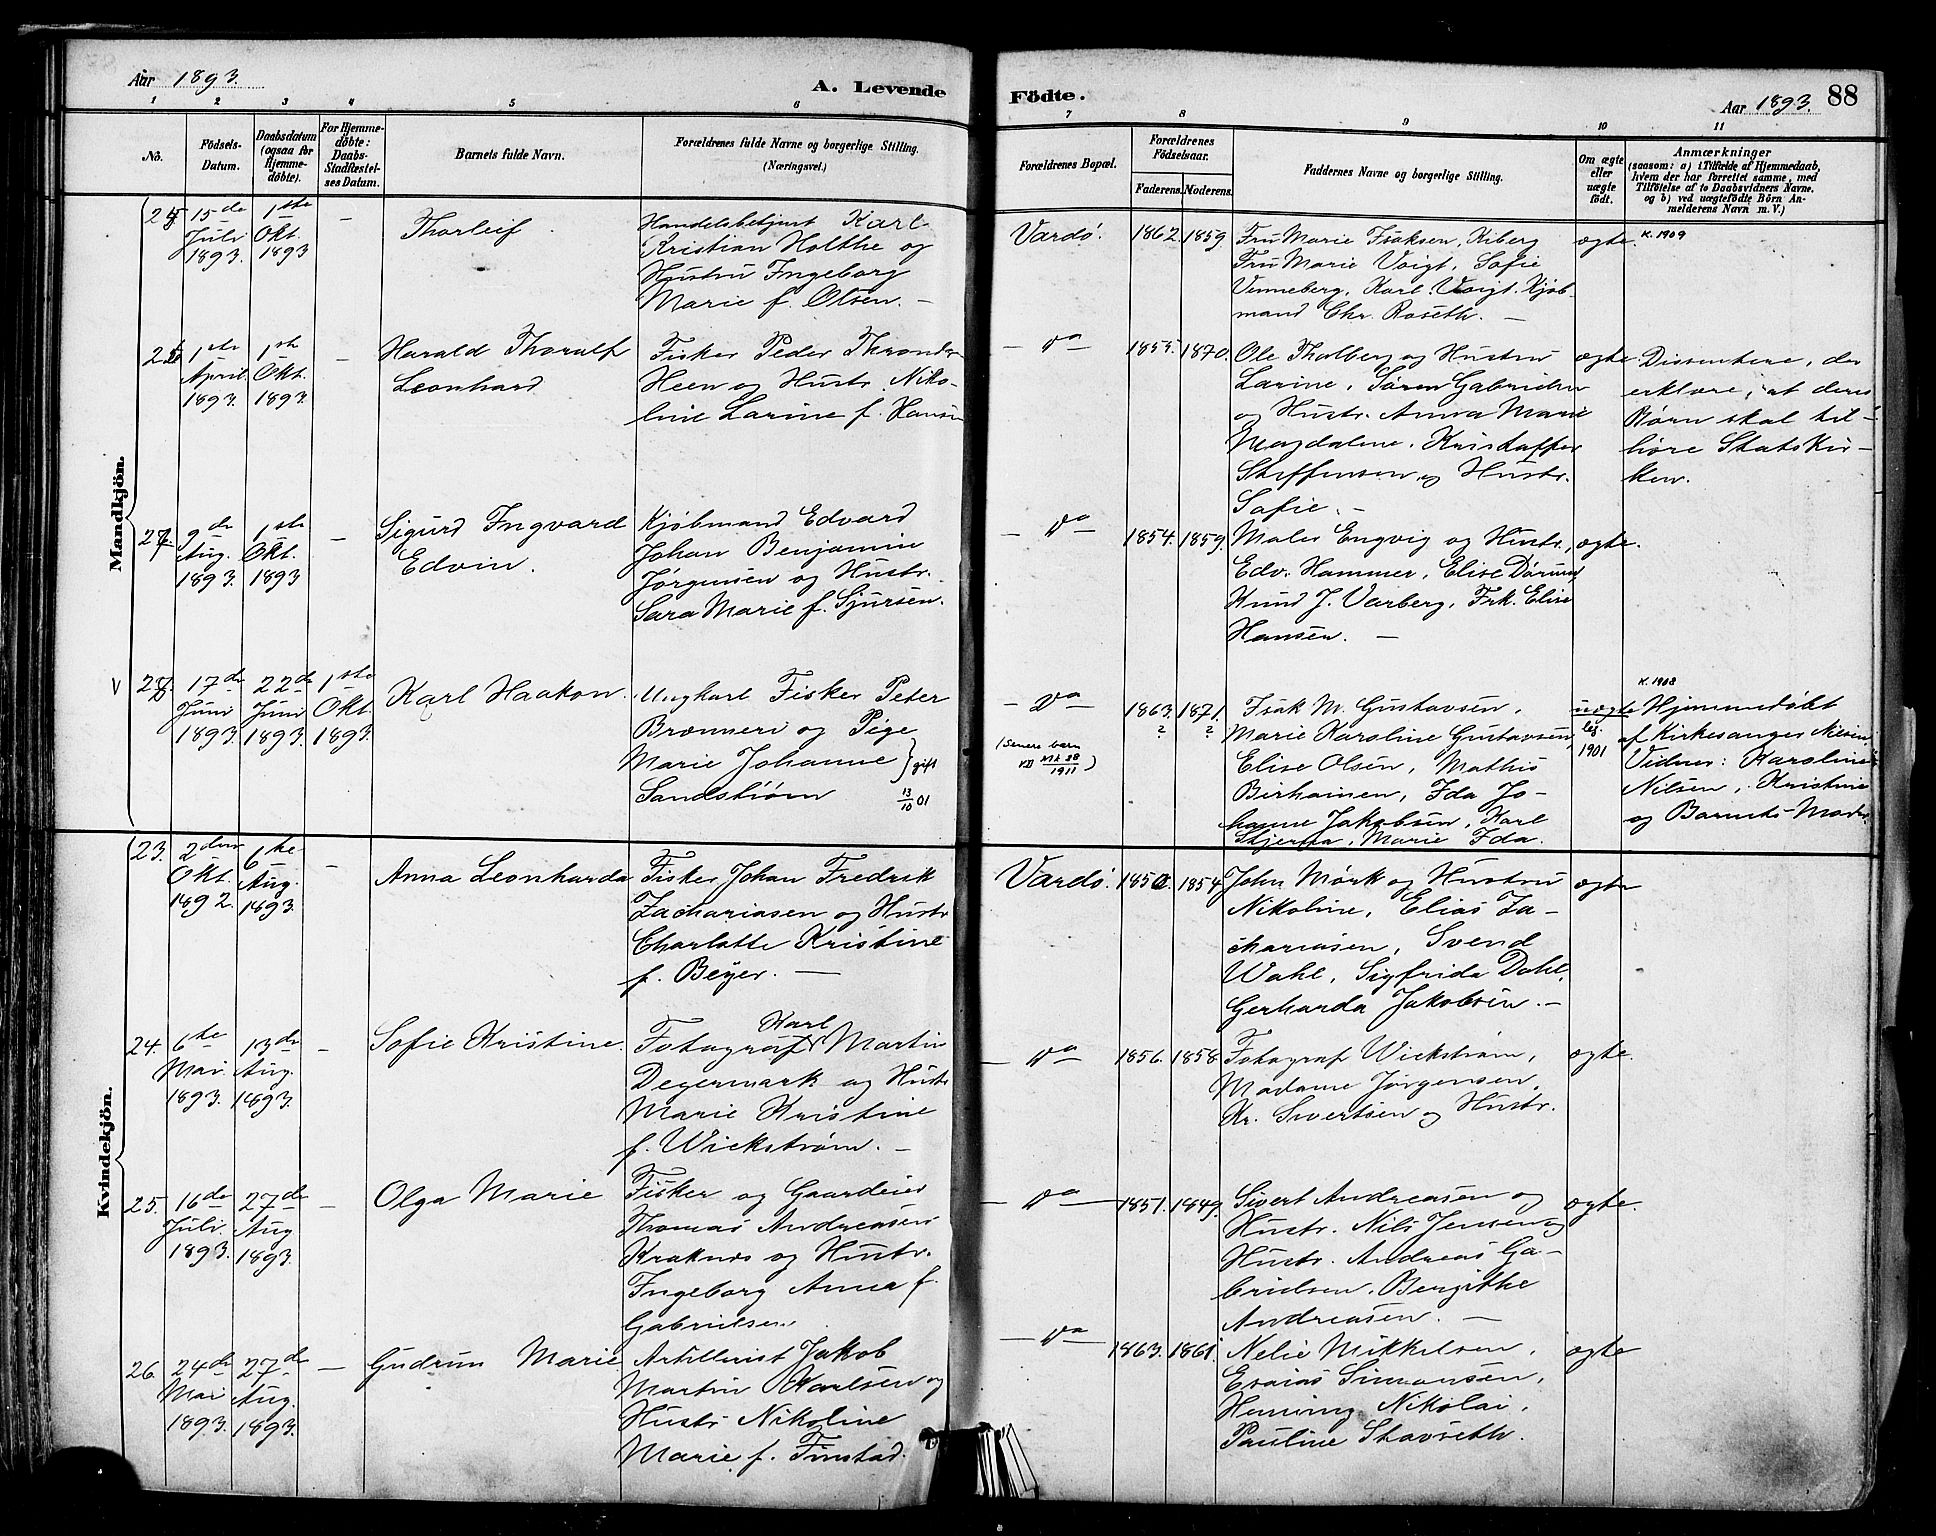 Aar 1893.
A. Levende
Födte.
Aar 1893.
88
1 2 3 4 5 6 7 8 9 10 11
No.
Födsels-Datum.
Daabsdatum (ogsaa for Hjemmedøbte).
For Hjemmedøbte: Daabs-Stadfæstelses Datum.
Barnets fulde Navn.
Forældrenes fulde Navne og borgerlige Stilling. (Næringsvei.)
Forældrenes Bopæl.
Forældrenes Födselsaar.
Faderens. Moderens.
Faddernes Navne og borgerlige Stilling.
Om ægte eller uægte født.
Anmærkninger
(saasom: a) i Tilfælde af Hjemmedaab,
hvem der har forrettet samme, med
Tilföielse af to Daabsvidners Navne.
og b) ved uægtefödte Börn An-
melderens Navn m. V.)
Mandkjön.
15de Juli 1893.
1ste Okt. 1893
–
Thorleif
Handelsbetjent Karl
Kristian Holthe og
Hustru Ingeborg
Marie f. Olsen. –
Vardö.
1862. 1859.
Fru Marie Isaksen, Kiberg
Fru Marie Voigt, Sofie
Venneberg, Karl Voigt, Kjöb-
mand Chr. Roseth. –
ægte.
K. 1909
1ste April 1893.
1ste Okt. 1893.
–
Harald Thoralf
Leonhard
Fisker Peder Thronds
Heen og Hustr. Niko-
line Larine f. Hansen
– Do –
1855. 1870.
Ole Tholberg og Hustru
Larine, Sören Gabrielsen
og Hustr. Anna Marie
Magdalene, Kristoffer
Steffensen og Hustr.
Sofie. –
ægte.
Dissentere, der
erklære, at deres
Börn skal til-
höre Statskir-
ken.
27.
9de Aug. 1893.
1ste Okt. 1893
–
Sigurd Ingvard
Edvin.
Kjöbmand Edvard
Johan Benjamin
Jørgensen og Hustr.
Sara Marie f. Sjursen.
– Do –
1854. 1859.
Maler Engvig og Hustr.,
Edv. Hammer, Elise
Knud J. Varberg, Frk. Elise
Hansen. –
ægte.
V
17de Juni 1893.
22de Juni 1893.
1ste Okt. 1893.
Karl Haakon.
Ungkarl Fisker Peter
og Pige
Marie Johanne } gift
Sandström 13/10 01
– Do –
(Senere barn
1911)
1863. ? 1871. ?
Isak M. Gustavsen,
Marie Karoline Gustavsen,
Elise Olsen, Mathis
Ida Jo-
hanne Jakobsen, Karl
Marie Ida.
uægte
leg. 1901
K. 1908
Hjemmedöbt
af Kirkesanger Nilsen,
Vidner: Karoline
Nilsen, Kristine
og Barnets Moder.
Kvindekjön.
23.
2den Okt. 1892.
6te Aug. 1893.
–
Anna Leonharda
Fisker Johan Fredrik
Zachariasen og Hustr.
Charlotte Kristine
f. Beyer. –
Vardö.
1850. 1854.
John Mörk og Hustru
Nikoline, Elias Za-
chariasen, Svend
Wahl, Sigfrida Dahl,
Gerharda Jakobsen. –
ægte
24.
6te Mai 1893.
13de Aug. 1893.
–
Sofie Kristine.
Karl
Fotograf Martin
Degermark og Hustr.
Marie Kristine
f. Wickström. –
– Do –
1856. 1858.
Fotograf Wickström,
Madame Jørgensen,
Kr. Sivertsen og Hustr.
ægte.
25.
16de Juli 1893.
27de Aug 1893.
–
Olga Marie
Fisker og Gaardeier
Thomas Andreasen
Kraknes og Hustr.
Ingeborg Anna f.
Gabrielsen.
– Do –
1851. 1849.
Sivert Andreasen og
Hustr. Nils Jensen og
Hustr. Andreas Ga-
brielsen. Bergithe
Andreasen. –
ægte.
26.
24de Mai 1893.
27de Aug. 1893.
–
Gudrun Marie
Artillerist Jakob
Martin Karlsen og
Hustr. Nikoline
Marie f. Finstad.
– Do –
1863. 1861.
Nelie Mikkelsen,
Esaias Simonsen,
Henning Nikolai,
Pauline Stavseth.
ægte